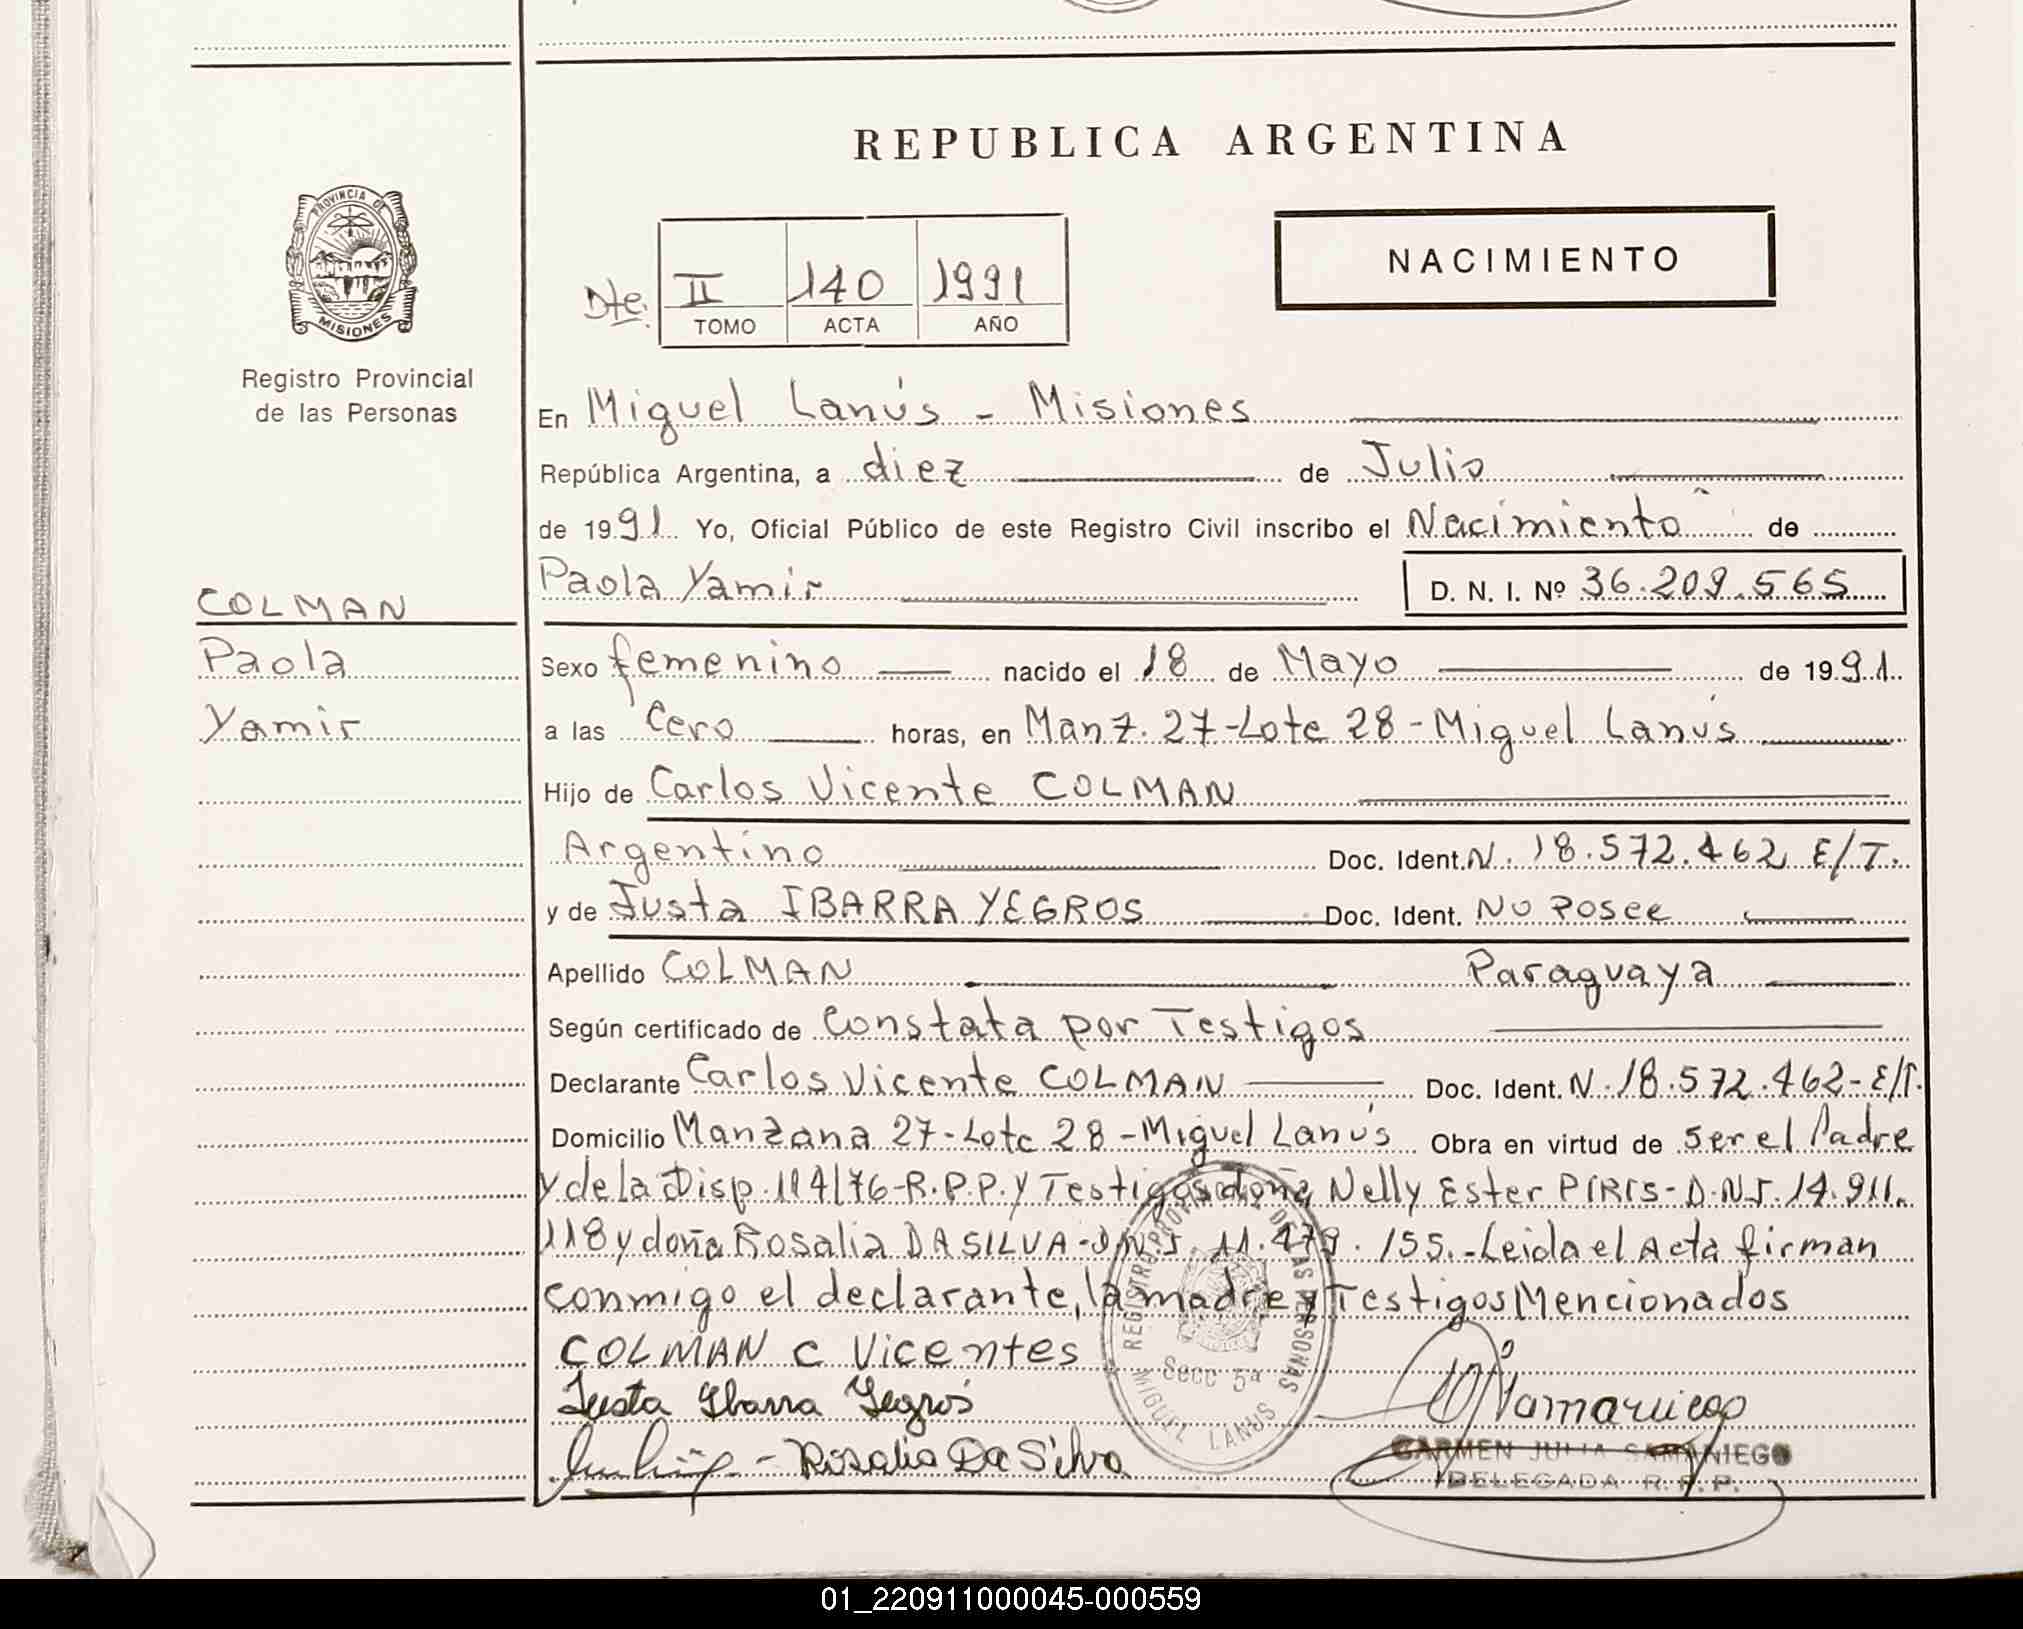 REPUBLICA ARGENTINA
PROVINCIA DE
MISIONES
Registro Provincial
de las Personas
NACIMIENTO
Dte. II 140 1991
TOMO ACTA AÑO
En Miguel Lanús - Misiones
República Argentina, a diez de Julio
de 1991 Yo, Oficial Público de este Registro Civil inscribo el Nacimiento de
Paola Yamir D. N. I. Nº 36.209.565
COLMAN
Paola
Yamir
Sexo femenino nacido el 18 de Mayo de 1991.
a las Cero horas, en Manz. 27-Lote 28-Miguel Lanús
Hijo de Carlos Vicente COLMAN
Argentino Doc. Ident. N. 18.572.462 E/T.
y de Justa IBARRA YEGROS Doc. Ident. No Posee
Apellido COLMAN Paraguaya
Según certificado de Constata por Testigos
Declarante Carlos Vicente COLMAN Doc. Ident. N. 18.572.462-E/T.
Domicilio Manzana 27-Lote 28-Miguel Lanús Obra en virtud de ser el Padre
y de la Disp. 114/76-R.P.P. y Testigos doña Nelly Ester PIRIS-D.N.I. 14.911.
118 y doña Rosalia DA SILVA-D.N.I. 11.479.155.-Leida el Acta firman
conmigo el declarante, la madre y Testigos Mencionados
COLMAN C Vicentes
Justa Ibarra Yegros
Rosalia Da Silva
REGISTRO PROVINCIAL DE LAS PERSONAS
Secc 5ª
MIGUEL LANUS
CARMEN JULIA SAMANIEGO
DELEGADA R.P.P.
01_220911000045-000559